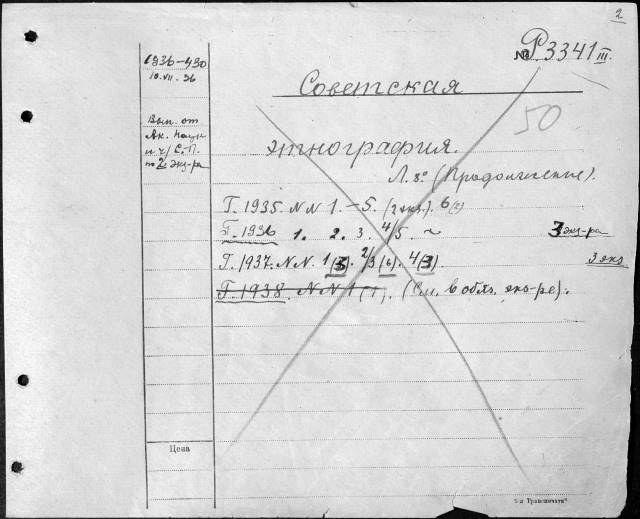 2
№ Р3341 III.
1936-430
10.VII.36
Советская
50
Вып. от
Ак. Наук
и ч/ С.П.
по 2 экз-ра
этнография.
Л. 8° (Продолжение).
Г. 1935. NN 1.-5. (2 экз.). 6(2)
Г. 1936 1. 2. 3. 4/5. ~ 3 экз-ра
Г. 1937. N.N. 1(3). 2/3(4). 4(3). 3 экз
Г. 1938. N N 1 (1). (См. в обяз. экз-ре).
Цена